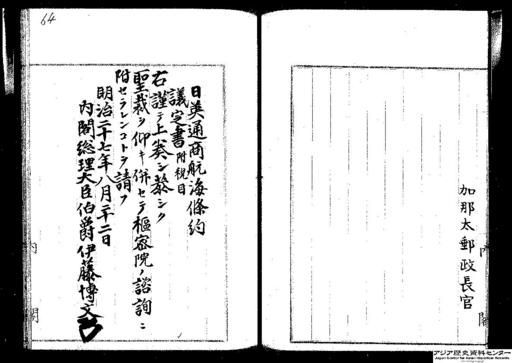 加那太郵政長官
内閣
64
日英通商航海條約
議定書附税目
右謹テ上奏シ恭シク
聖裁ヲ仰キ併セテ樞密院ノ諮詢ニ
附セラレンコトヲ請フ
明治二十七年八月二十二日
内閣総理大臣伯爵伊藤博文
内閣
アジア歴史資料センター
Japan Center for Asian Historical Records